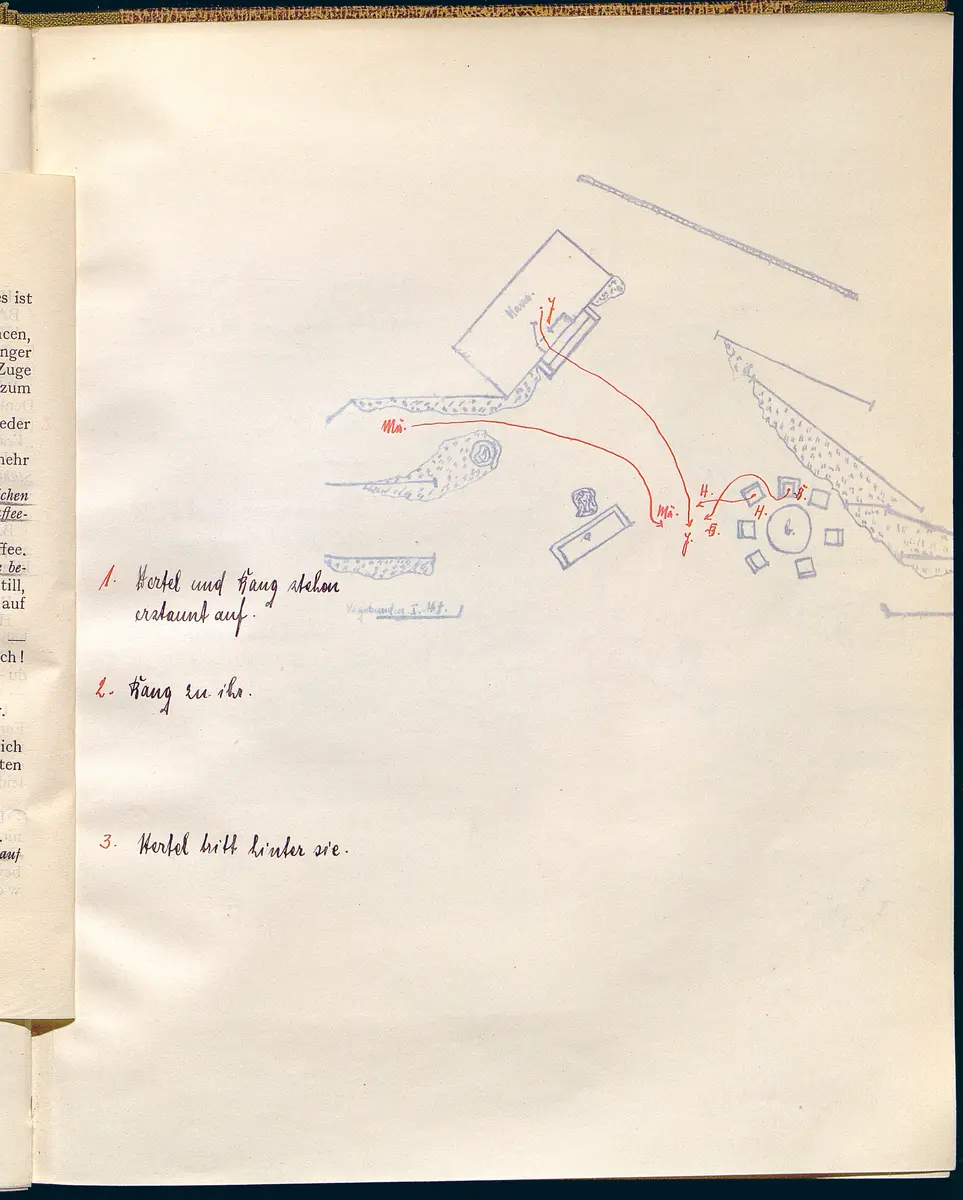 es ist
nger
Zuge
zum
eder
mehr
chen
ffee-
ffee.
e be-
till,
auf
—
ch!
r.
ich
ten
auf
Haus.
J.
Mä.
H.
K.
Mä.
H.
K.
J.
b.
1. Hertel und Kang stehen
erstaunt auf.
Vagabunden I. Akt.
2. Kang zu ihr.
3. Hertel tritt hinter sie.